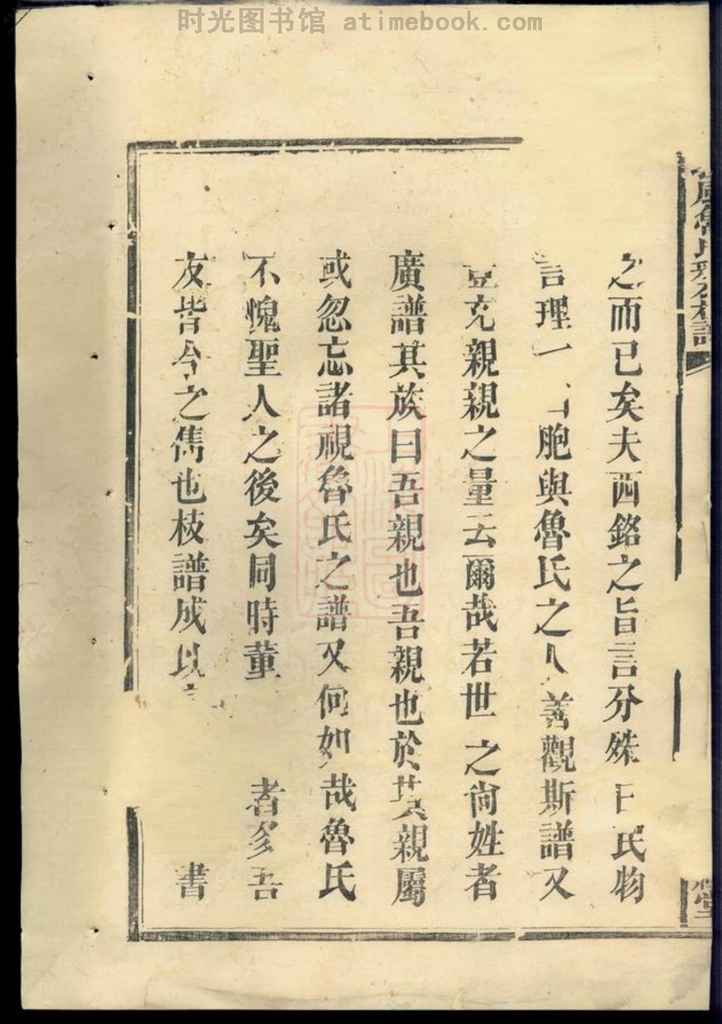 时光图书馆 atimebook.com
之而已矣夫西銘之旨言分殊曰民物
言理一 胞與魯氏之人善觀斯譜又
豈充親親之量云爾哉若世之尚姓者
廣譜其族曰吾親也吾親也於其親屬
或忽忘諸視魯氏之譜又何如哉魯氏
不愧聖人之後矣同時董 者多吾
友皆今之儁也枝譜成以 書